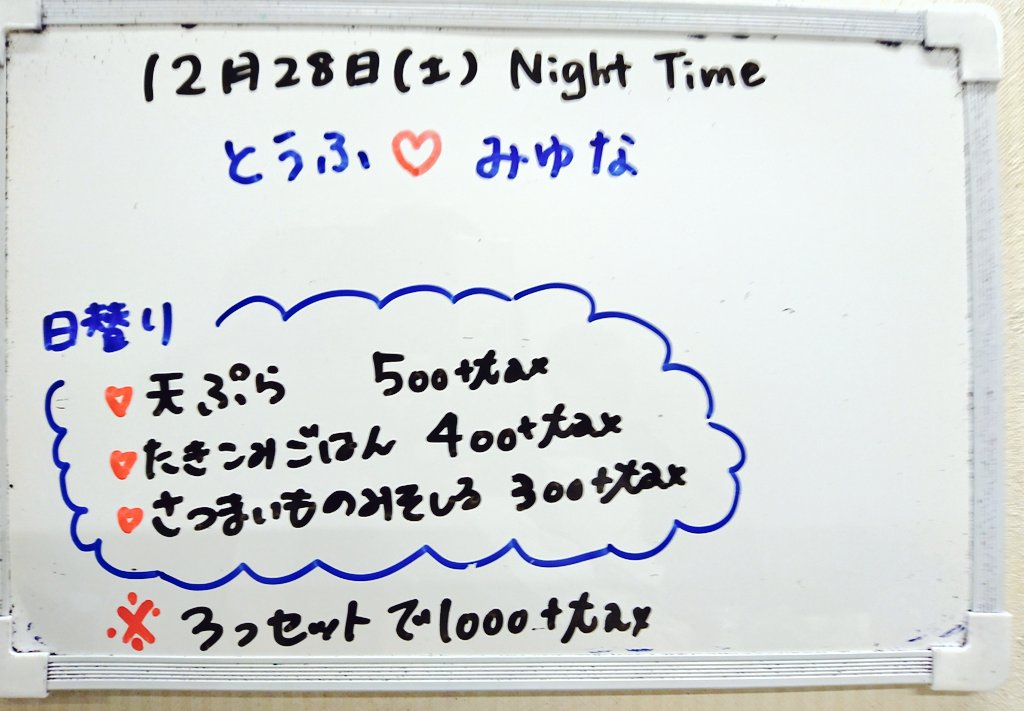 12月28日(土) Night Time
とうふ♡みゆな
日替り
♥天ぷら 500+tax
♥たきこみごはん 400+tax
♥さつまいものみそしる 300+tax
※3つセットで1000+tax